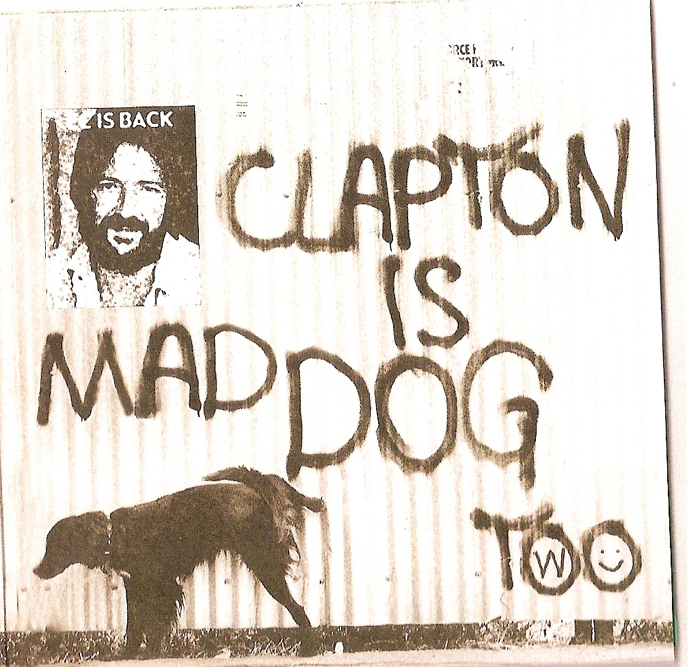 IS BACK
CLAPTON
IS
MAD DOG
TOO
W